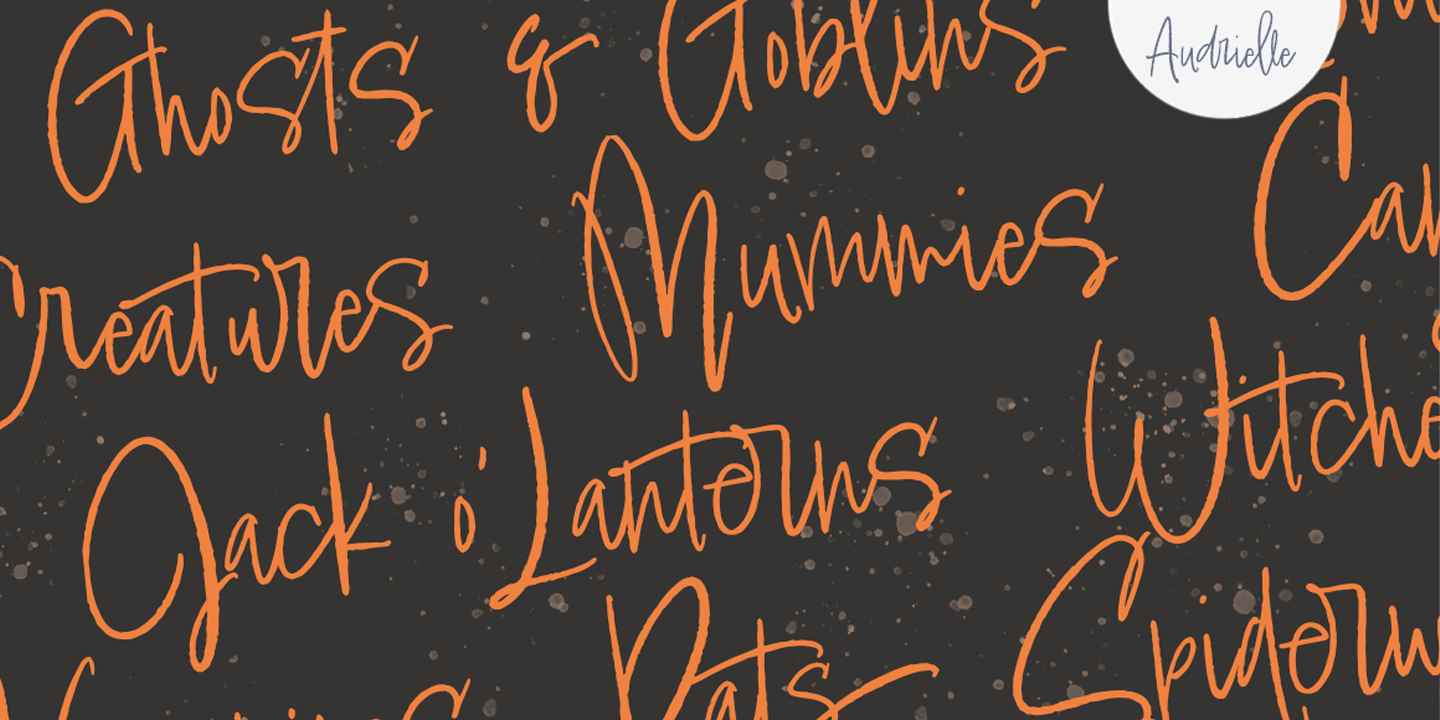 Ghosts & Goblins
Audrielle
Creatures
Mummies
Jack o' Lanterns
Witche
Spiderw